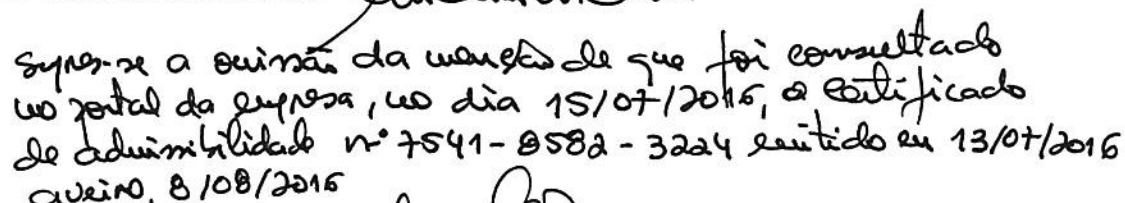 Supre-se a omissão da menção de que foi consultado
no portal da empresa, no dia 15/07/2016, o certificado
de admissibilidade nº 7541-8582-3224 emitido em 13/07/2016
Aveiro, 8/08/2016